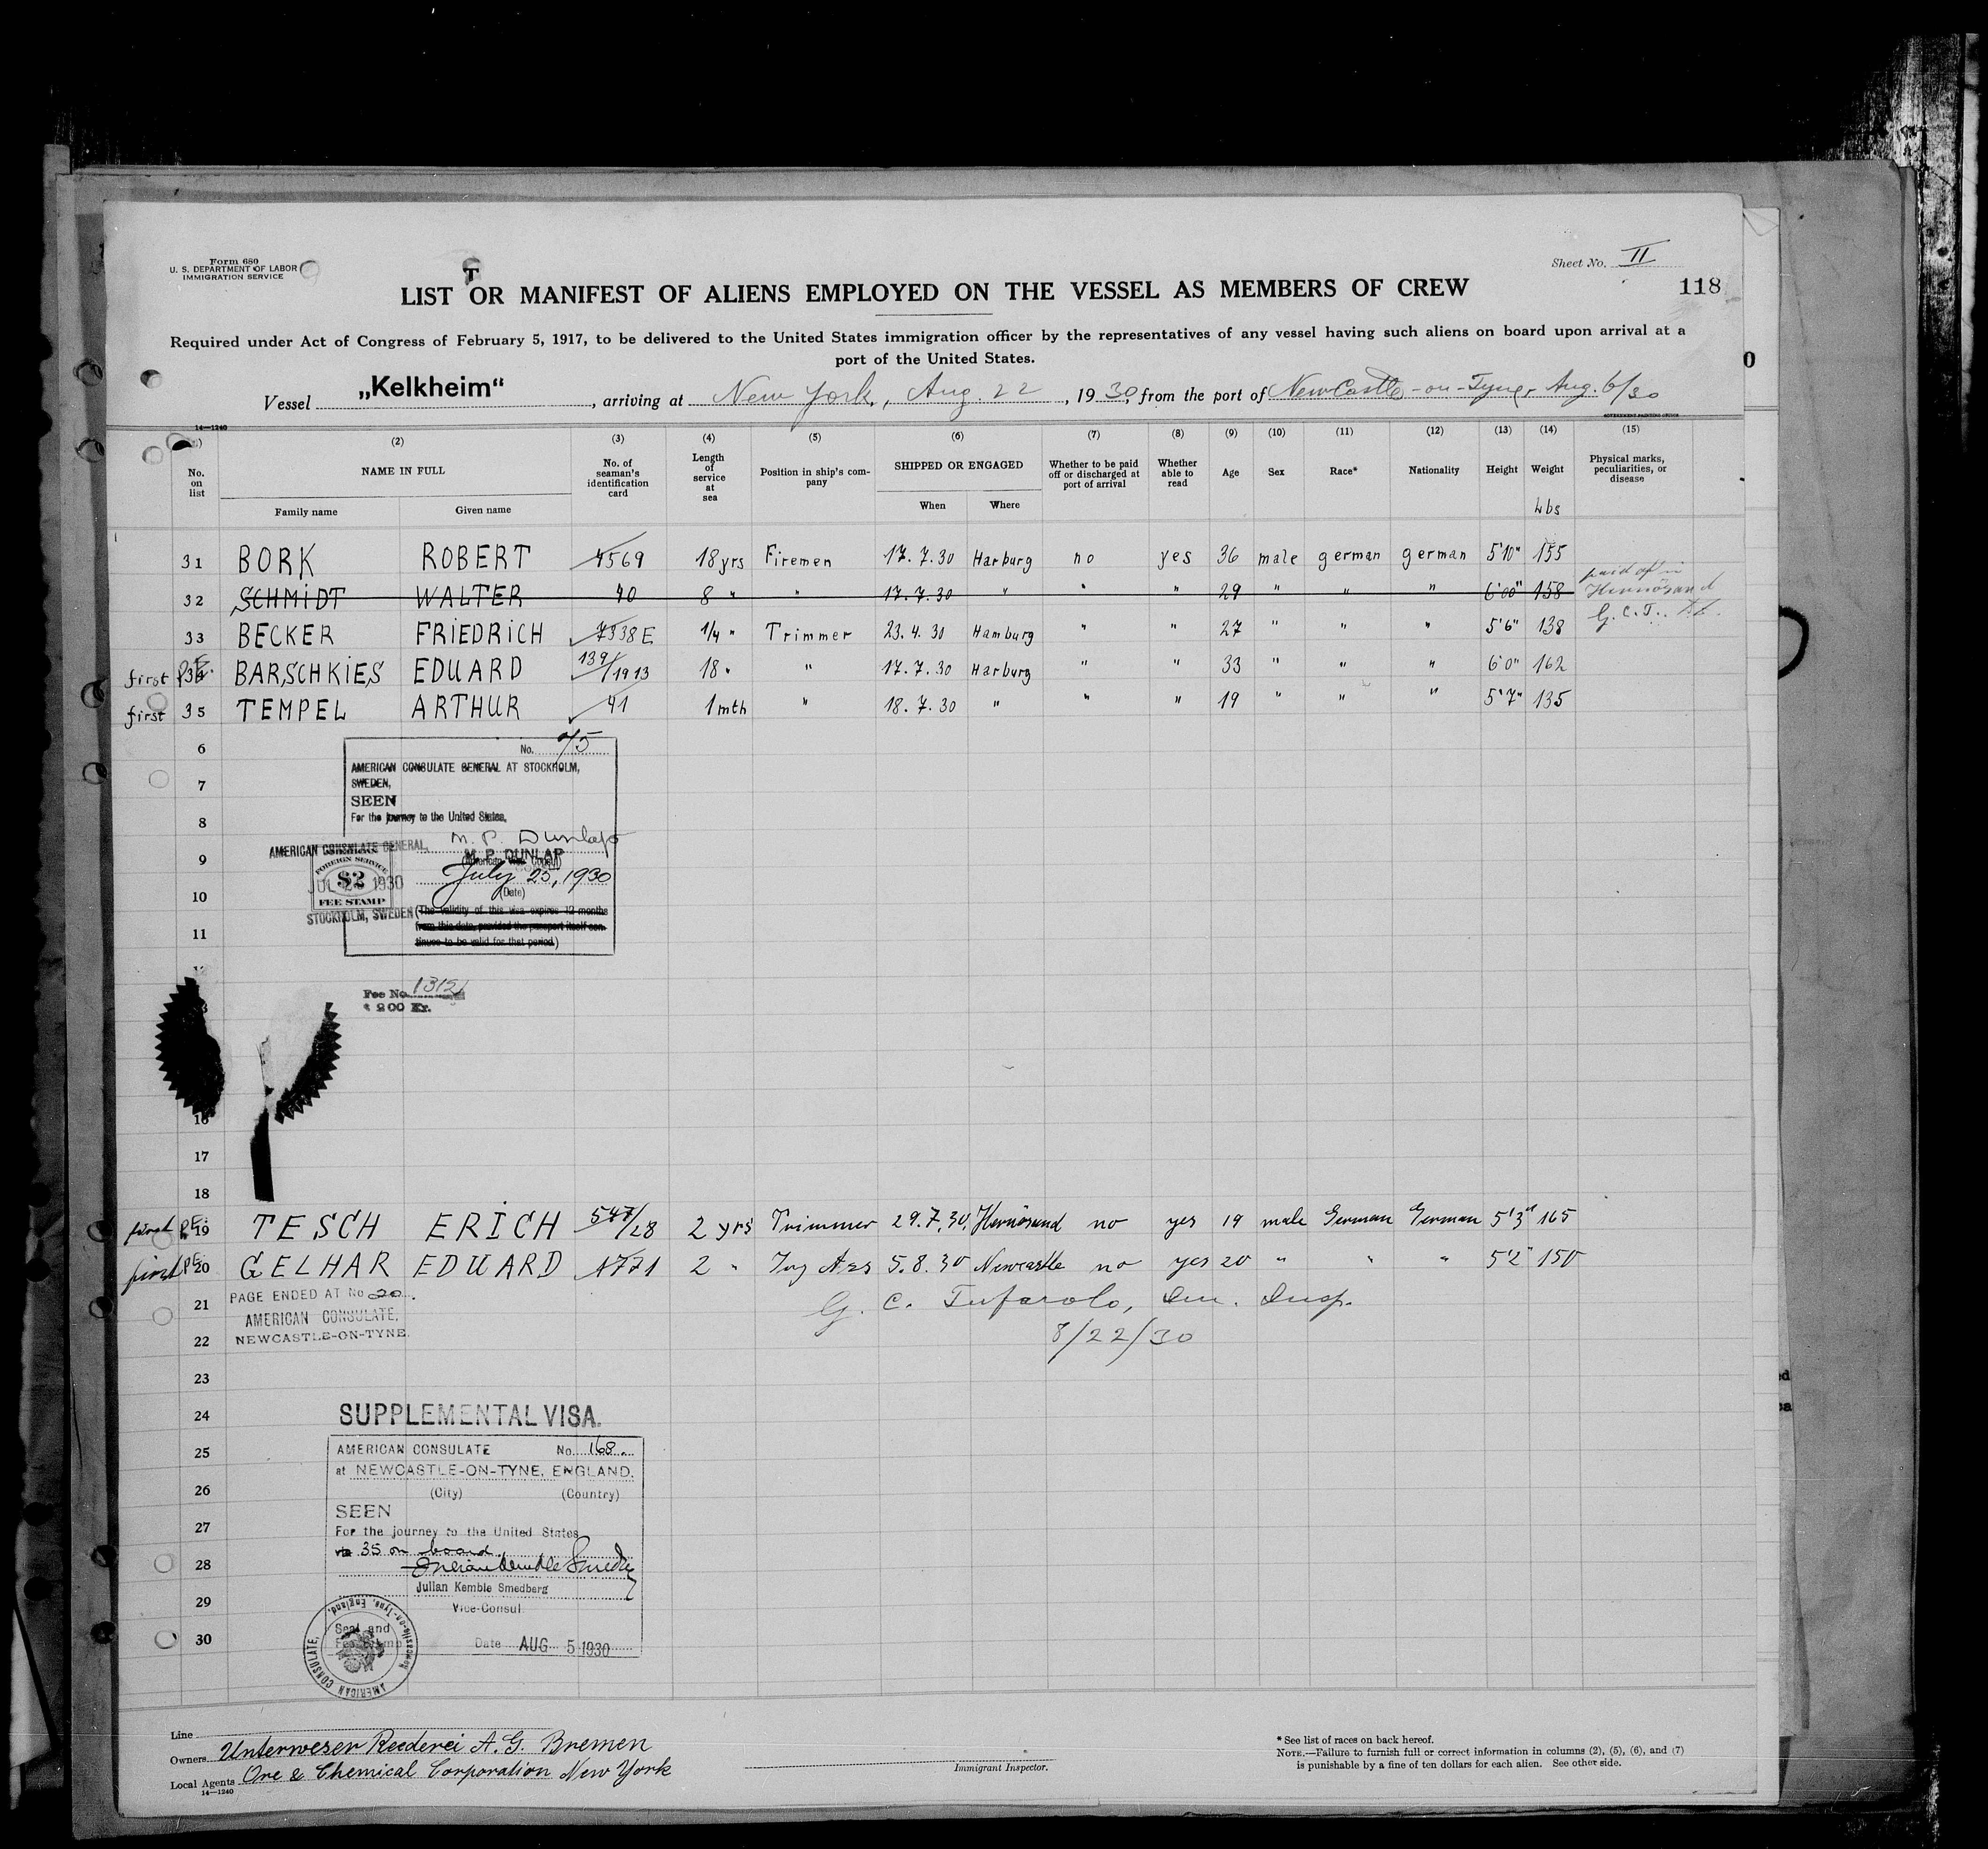 Form 680
U. S. DEPARTMENT OF LABOR
IMMIGRATION SERVICE
Sheet No. II
118
T
LIST OR MANIFEST OF ALIENS EMPLOYED ON THE VESSEL AS MEMBERS OF CREW
Required under Act of Congress of February 5, 1917, to be delivered to the United States immigration officer by the representatives of any vessel having such aliens on board upon arrival at a
port of the United States.
Vessel „Kelkheim“, arriving at New York, Aug. 22, 1930, from the port of NewCastle-on-Tyne, Aug. 6/30
14—1240
GOVERNMENT PRINTING OFFICE
(2) (3) (4) (5) (6) (7) (8) (9) (10) (11) (12) (13) (14) (15)
No. on list NAME IN FULL No. of seaman's identification card Length of service at sea Position in ship's company SHIPPED OR ENGAGED Whether to be paid off or discharged at port of arrival Whether able to read Age Sex Race* Nationality Height Weight Physical marks, peculiarities, or disease
Family name Given name When Where Lbs
31 BORK ROBERT 4569 18 yrs Firemen 17.7.30 Harburg no yes 36 male german german 5'10" 155
32 SCHMIDT WALTER 40 8 " " 17.7.30 " " " 29 " " " 6'00" 158 paid off in
Hernösand
G. C. T.
33 BECKER FRIEDRICH 7338 E 1/4 " Trimmer 23.4.30 Hamburg " " 27 " " " 5'6" 138
first P.E. 34 BARSCHKIES EDUARD 139/1913 18 " " 17.7.30 Harburg " " 33 " " " 6'0" 162
first 35 TEMPEL ARTHUR 41 1 mth " 18.7.30 " " " 19 " " " 5'7" 135
6
7
8
9
10
11
No. 75
AMERICAN CONSULATE GENERAL AT STOCKHOLM,
SWEDEN,
SEEN
For the journey to the United States,
M. P. Dunlap
M. P. DUNLAP
July 25, 1930
(Date)
(The validity of this visa expires 12 months
from this date, provided the passport itself con-
tinues to be valid for that period)
AMERICAN CONSULATE GENERAL,
FOREIGN SERVICE
$2
FEE STAMP
STOCKHOLM, SWEDEN
Fee No. 1312
16
17
18
first P.E. 19 TESCH ERICH 547/28 2 yrs Trimmer 29.7.30. Hernösand no yes 19 male German German 5'3" 165
first P.E. 20 GELHAR EDUARD 1771 2 " 5.8.30 Newcastle no yes 20 " " " 5'2" 150
21 PAGE ENDED AT No 20.
AMERICAN CONSULATE,
22 NEWCASTLE-ON-TYNE.
G. C. Tufarolo, Imm. Insp.
8/22/30
23
24
25
26
27
28
29
30
SUPPLEMENTAL VISA.
AMERICAN CONSULATE No. 168.
at NEWCASTLE-ON-TYNE, ENGLAND.
(City) (Country)
SEEN
For the journey to the United States
via 35 on board.
Julian Kemble Smedberg
Julian Kemble Smedberg
Vice-Consul
Seal and
Fee Stamp
Date AUG 5 1930
AMERICAN CONSULATE, Newcastle-on-Tyne, England.
Line
Owners Unterweser Reederei A. G. Bremen
Local Agents Ore & Chemical Corporation New York
14—1240
Immigrant Inspector.
* See list of races on back hereof.
NOTE.—Failure to furnish full or correct information in columns (2), (5), (6), and (7)
is punishable by a fine of ten dollars for each alien. See other side.